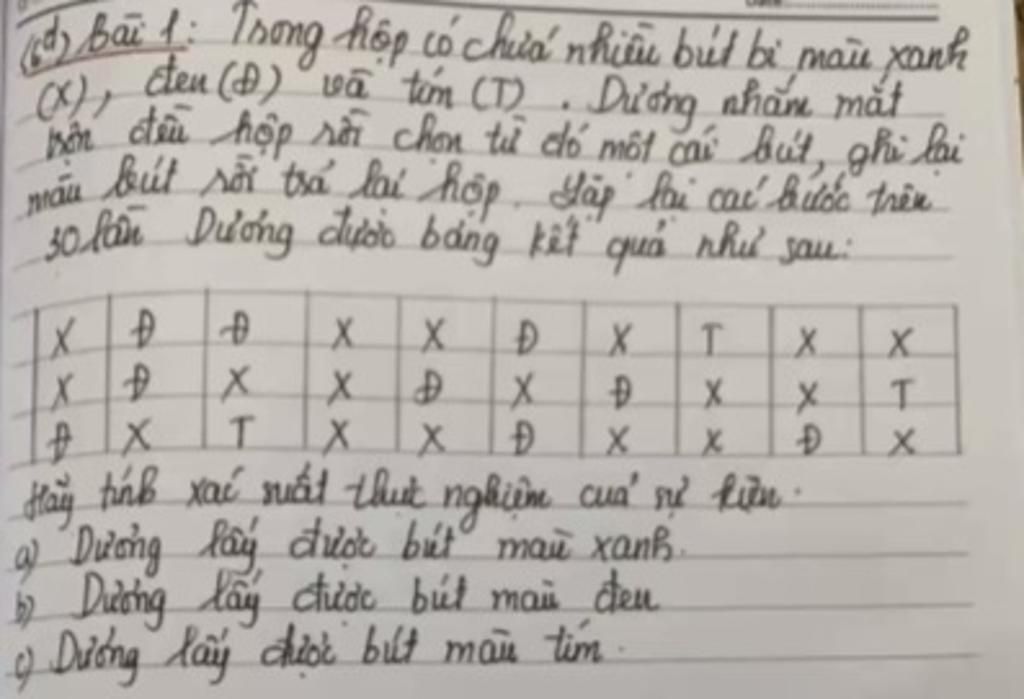 (6đ) Bài 1: Trong hộp có chứa nhiều bút bi màu xanh
(X), đen (Đ) và tím (T). Dương nhắm mắt
trộn đều hộp rồi chọn từ đó một cái bút, ghi lại
màu bút rồi trả lại hộp. Lặp lại các bước trên
30 lần Dương được bảng kết quả như sau:
X Đ Đ X X Đ X T X X
X Đ X X Đ X Đ X X T
Đ X T X X Đ X X Đ X
Hãy tính xác suất thực nghiệm của sự kiện.
a) Dương lấy được bút màu xanh.
b) Dương lấy được bút màu đen
c) Dương lấy được bút màu tím.